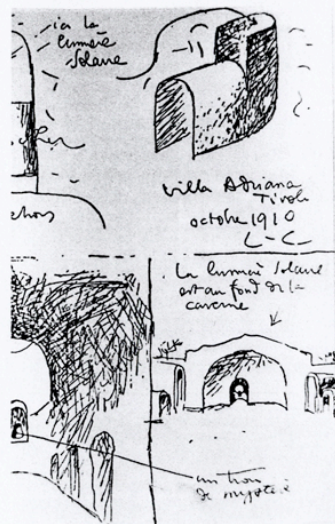 ici la
lumière
Solaire
Villa Adriana
Tivoli
octobre 1910
L-C
La lumière Solaire
est au fond de la
caverne
un trou
de mystère